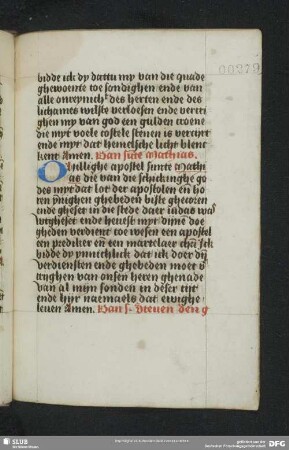 bidde ick dy dattu my van die quade
ghewoente toe sondighen ende van
alle onreynich᷑ des herten ende des
lichames wilste verloesen ende vercri
ghen my van god een gulden croene
die myt voele costele steinen is verciert
ende myr dat hemelsche licht blenc
kent Amen. Van sūte Mathias.
O hyllighe apostel suncte Math
ias die van die schickinghe go
des myt dat lot der apostolen en̄ ho
ren ynighen ghebeden biste gheworen
ende gheset in die stede daer iudas was
wtgheset ende heuest myt dyne doe
gheden verdient toe wesen een apostel
een prediker en̄ een martelaer
bidde dy ynnichlick dat ick doer dy
verdiensten ende ghebeden moet v
wrghen van onsen heren ghenade
van al myn sonden in deser tyt
ende hyr naemaels dat ewighe
leuen Amen. Van s. Steuen den
SLUB
DFG